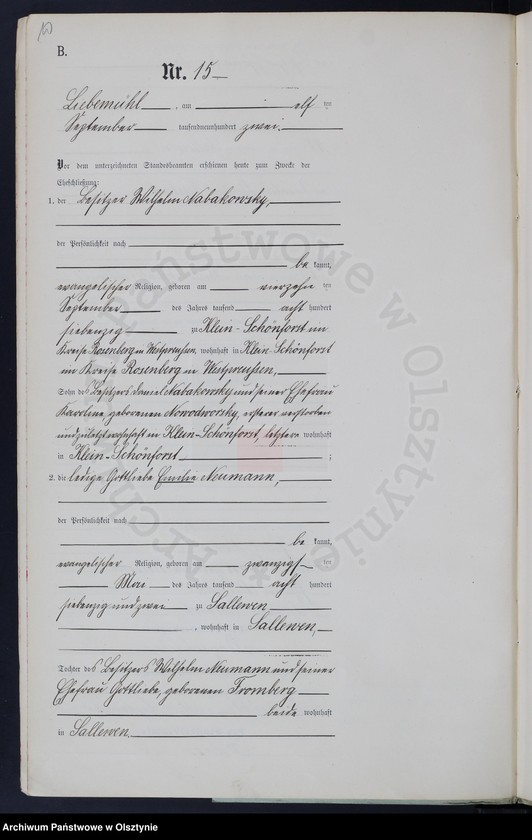 B.
Nr. 15
Liebemühl, am elf ten
September tausendneunhundert zwei.
Vor dem unterzeichneten Standesbeamten erschienen heute zum Zwecke der
Eheschließung:
1. der Besitzer Wilhelm Nabakowsky,
der Persönlichkeit nach
be kannt,
evangelischer Religion, geboren am vierzehn ten
September des Jahrs tausend acht hundert
siebenzig zu Klein-Schönforst im
Kreise Rosenberg in Westpreußen, wohnhaft in Klein-Schönforst
im Kreise Rosenberg in Westpreußen,
Sohn des Besitzers Daniel Nabakowsky und seiner Ehefrau
Karoline, geborenen Nowodworsky, ersterer verstorben
und zuletzt wohnhaft in Klein-Schönforst, letztere wohnhaft
in Klein-Schönforst ;
2. die ledige Gottliebe Emilie Neumann,
der Persönlichkeit nach
be kannt,
evangelischer Religion, geboren am zwanzigs ten
Mai des Jahrs tausend acht hundert
siebenzig und zwei zu Sallewen
, wohnhaft in Sallewen,
Tochter des Besitzers Wilhelm Neumann und seiner
Ehefrau Gottliebe, geborenen Fromberg
beide wohnhaft
in Sallewen.
Archiwum Państwowe w Olsztynie
Archiwum Państwowe w Olsztynie